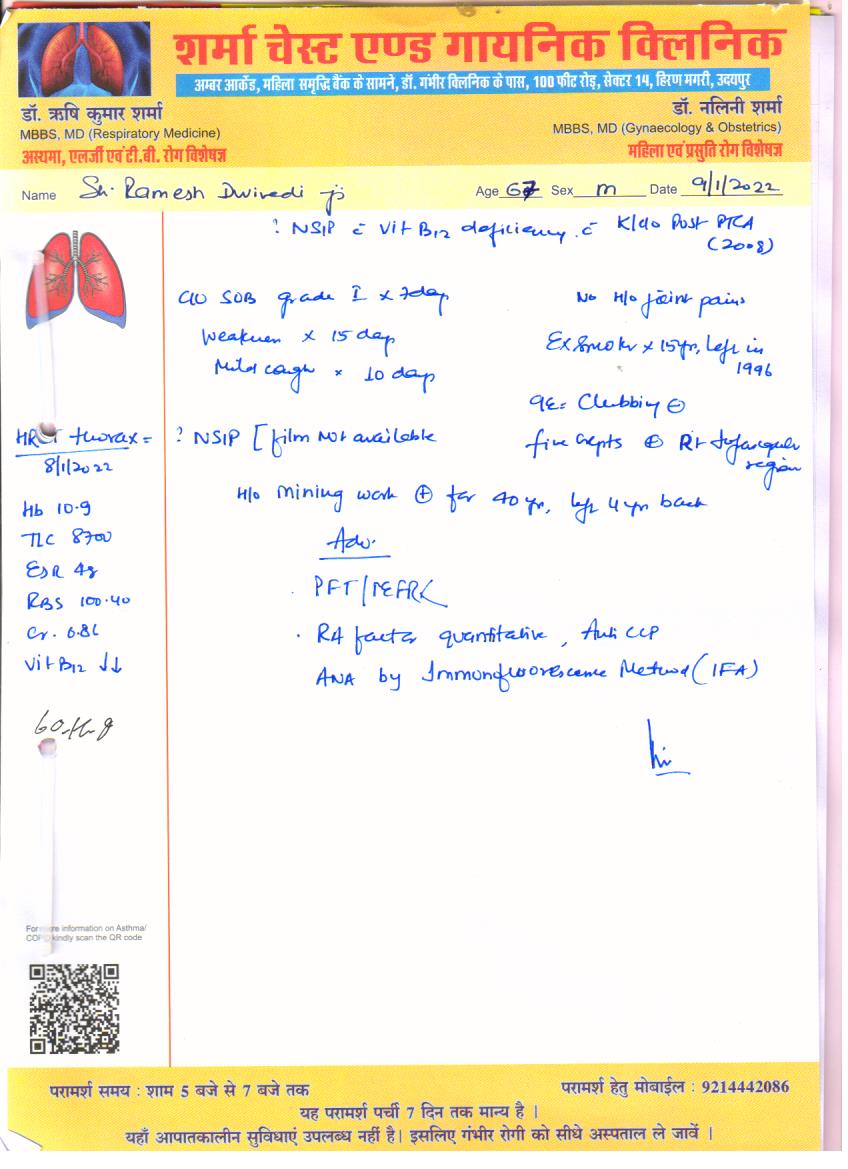 शर्मा चेस्ट एण्ड गायनिक क्लिनिक
अम्बर आर्केड, महिला समृद्धि बैंक के सामने, डॉ. गंभीर क्लिनिक के पास, 100 फीट रोड़, सेक्टर 14, हिरण मगरी, उदयपुर
डॉ. ऋषि कुमार शर्मा
MBBS, MD (Respiratory Medicine)
अस्थमा, एलर्जी एवं टी.बी. रोग विशेषज्ञ
डॉ. नलिनी शर्मा
MBBS, MD (Gynaecology & Obstetrics)
महिला एवं प्रसुति रोग विशेषज्ञ
Name Sh. Ramesh Dwivedi ji Age 67 Sex m Date 9/1/2022
? NSIP c Vit B12 deficiency c K/c/o Post PTCA
(2008)
C/O SOB grade I x 7 day
Weakness x 15 day
Mild cough x 10 day
No H/o joint pains
Ex smoker x 15 yr, left in
1996
Clubbing ⊖
fine crepts ⊕ Rt
region
HRCT thorax =
8/1/2022
? NSIP [film not available
H/o mining work ⊕ for 40 yr, left 4 yr back
Hb 10.9
TLC 8700
ESR 48
RBS 100.40
Cr.
Vit B12 ↓↓
Adv.
. PFT/
. RA factor quantitative, Anti CCP
ANA by Immunofluorescence Method (IFA)
For more information on Asthma/
COPD kindly scan the QR code
परामर्श समय : शाम 5 बजे से 7 बजे तक
परामर्श हेतु मोबाईल : 9214442086
यह परामर्श पर्ची 7 दिन तक मान्य है ।
यहाँ आपातकालीन सुविधाएं उपलब्ध नहीं है। इसलिए गंभीर रोगी को सीधे अस्पताल ले जावें ।